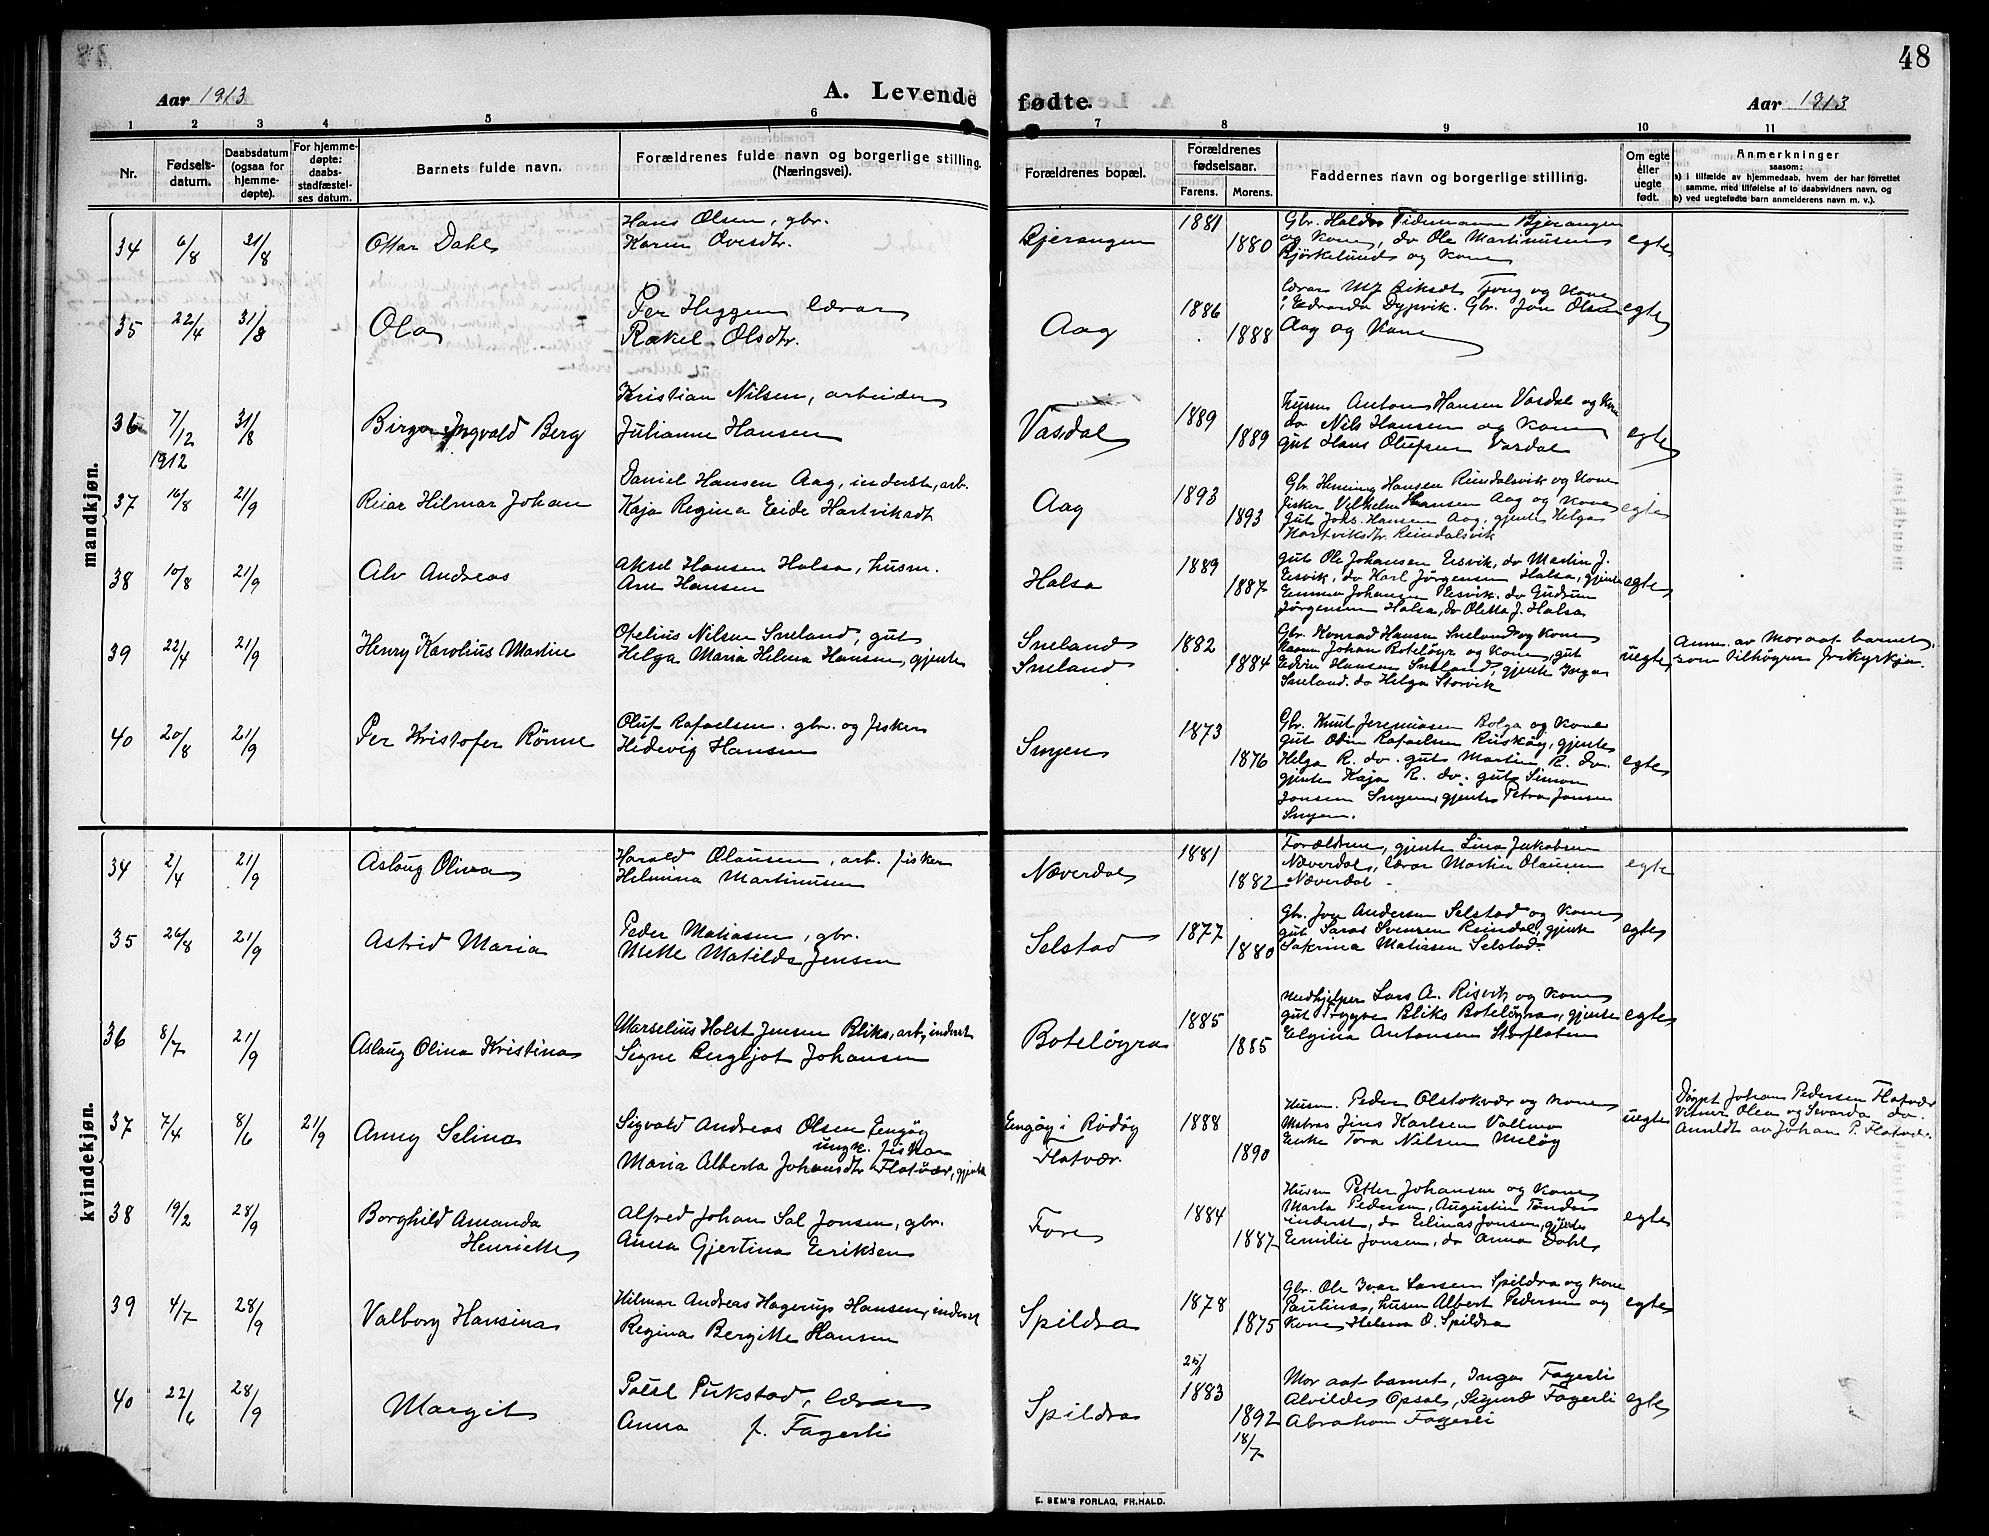 48
Aar 1913
A. Levende fødte.
Aar 1913
1 2 3 4 5 6 7 8 9 10 11
Nr.
Fødsels-
datum.
Daabsdatum
(ogsaa for
hjemme-
døpte).
For hjemme-
døpte:
daabs-
stadfæstel-
ses datum.
Barnets fulde navn.
Forældrenes fulde navn og borgerlige stilling.
(Næringsvei).
Forældrenes bopæl.
Forældrenes
fødselsaar.
Farens. Morens.
Faddernes navn og borgerlige stilling.
Om egte
eller
uegte
født.
Anmerkninger
saasom:
a) i tilfælde av hjemmedaab, hvem der har forrettet
samme, med tilføielse af to daabsvidners navn, og
b) ved uegtefødte barn anmelderens navn m. v.).
mandkjøn.
34 6/8 21/8 Ottar Dahl
Hans Olsen, gbr.
Karen Ovesdtr.
Bjerangen 1881 1880
Gbr. Haldor Tidemann Bjerangen
og Kone, do Ole Martinusen
Bjørkelund og Kone
egte
35 22/4 31/8 Ola
Per Heggen lærar
Rakel Olsdtr.
Aag 1886 1888
Lærar Tjong og Kone
Edvarda Dypvik. Gbr. Jon Olsen
Aag og Kone
egte
36 7/12 1912 31/8 Birger Ingvald Berg
Kristian Nilsen, arbeider
Julianne Hansen
Vasdal 1889 1889
Husm Anton Hansen Vasdal og Kone
do Nils Hansen og Kone
gut Hans Olufsen Vasdal
egte
37 16/8 21/9 Reiar Hilmar Johan
Daniel Hansen Aag, inderst, arb.
Kaja Regina Eide Hartviksdt
Aag 1893 1893
Gbr. Heming Hansen Reindalsvik og Kone
fisker Velhelm Hansen Aag og Kone
Gut Johs. Hansen Aag, gjente Helga
Hartviksdtr Reindalsvik
egte
38 10/8 21/9 Alv Andreas
Aksel Hansen Halsa, husm.
Ane Hansen
Halsa 1889 1887
Gut Ole Johansen Eesvik, do Martin J.
Eesvik, do Karl Jørgensen Halsa, gjente
Emma Johansen Eesvik. do Gudrun
Jørgensen Halsa, do Oletta J. Halsa
egte
39 22/4 21/9 Henry Karolius Martin
Ofelius Nilsen Sneland, gut
Helga Maria Helma Hansen, gjente
Sneland
Sneland 1882 1884
Gbr. Konrad Hansen Sneland og Kone
Johan Boteløyr og Kone, gut
Edvin Hansen Sneland, gjente Inga
Sneland. do Helga Storvik
uegte
Anm. av Mor aat barnet,
som tilhøyrer frikyrkja.
40 20/8 21/9 Per Kristofer Rønne
Oluf Rafaelsen. gbr. og fisker
Hedevig Hansen
Smyen 1873 1876
Gbr. Knut Jeremiasen Bolga og Kone
gut Odin Rafaelsen Ruskøy, gjente
Helga R. do. gut Martin R. do.
gjente Kaja R. do. gut Simon
Jonsen Smyen, gjente Petra Jonsen
Smyen.
egte
kvindekjøn.
34 2/4 21/9 Aslaug Oliva
Harald Olausen, arb. fisker
Helmina Martinusen
Næverdal 1881 1882
Forældrene, gjente Lina Jakobsen
Næverdal, Lærar Martin Olausen
Næverdal -
egte
35 26/8 21/9 Astrid Maria
Peder Matiasen, gbr.
Mette Matilde Jensen
Selstad 1877 1880
Gbr. Jon Andersen Selstad og Kone
gut Saras Svensen Reindal, gjente
Katrina Matiasen Selstad
egte
36 8/7 21/9 Aslaug Olina Kristina
Marselius Holst Jensen Bliks, arb, inderst
Signe Bergljot Johansen
Boteløyra 1885 1885
Medhjelper Lars A. Risvik og Kone
gut Trygve Bliks Boteløyra, gjente
Elgina Antonsen Storflaten
egte
37 7/4 8/6 21/9 Anny Selina
Sigvald Andreas Olsen Eengøy
ungk. fisker
Maria Alberta Johansdtr Flatvær, gjente
Eengøy i Rødøy
Flatvær. 1888 1890
Husm. Peder Olstokvær og Kone
Matros Jens Karlsen Valluvo
Enke Tora Nilsen Mesløy
uegte
Døypt Johan Pedersen Flatvær
Vitner Olea og Sevarda do.
Anmeldt av Johan P. Flatvær.
38 19/2 28/9 Borghild Amanda
Henriette
Alfred Johan Sal Jonsen, gbr.
Anna Gjertina Eeriksen
Fore 1884 1887
Husm Petter Johansen og Kone
Marta Pedersen, Augustin Tønder
inderst, do Eelinas Jonsen, gjente
Eemilie Jonsen, do Anna Dahl
egte
39 4/7 28/9 Valborg Hansina
Hilmar Andreas Hagerup Hansen, inderst
Regina Bergitte Hansen
Spildra 1878 1875
Gbr. Ole Ivar Larsen Spildra og Kone
Paulina, husm Albert Pedersen og
Kone Helena O. Spildra
egte
40 22/6 28/9 Margit
Paul Pukstad, Lærar
Anna f. Fagerli
Spildra 25/1 1883 1892 18/7
Mor aat barnet, Inga Fagerli
Alvilde Opsal, Sigurd Fagerli
Abraham Fagerli
egte
E. SEM'S FORLAG, FR.HALD.